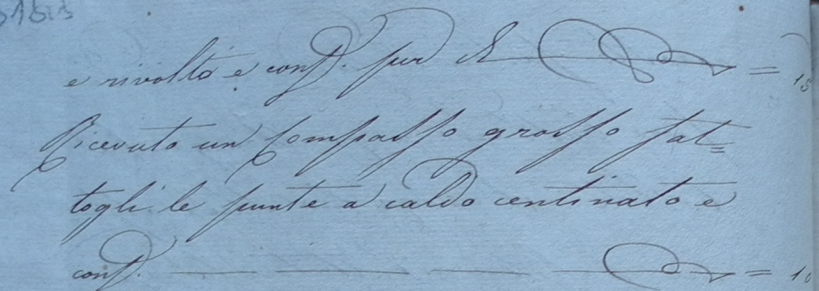 e rivoltò e consp. per L = 15
Ricevuto un Compasso grosso fat=
togli le punte a caldo centinato e
consp. = 10